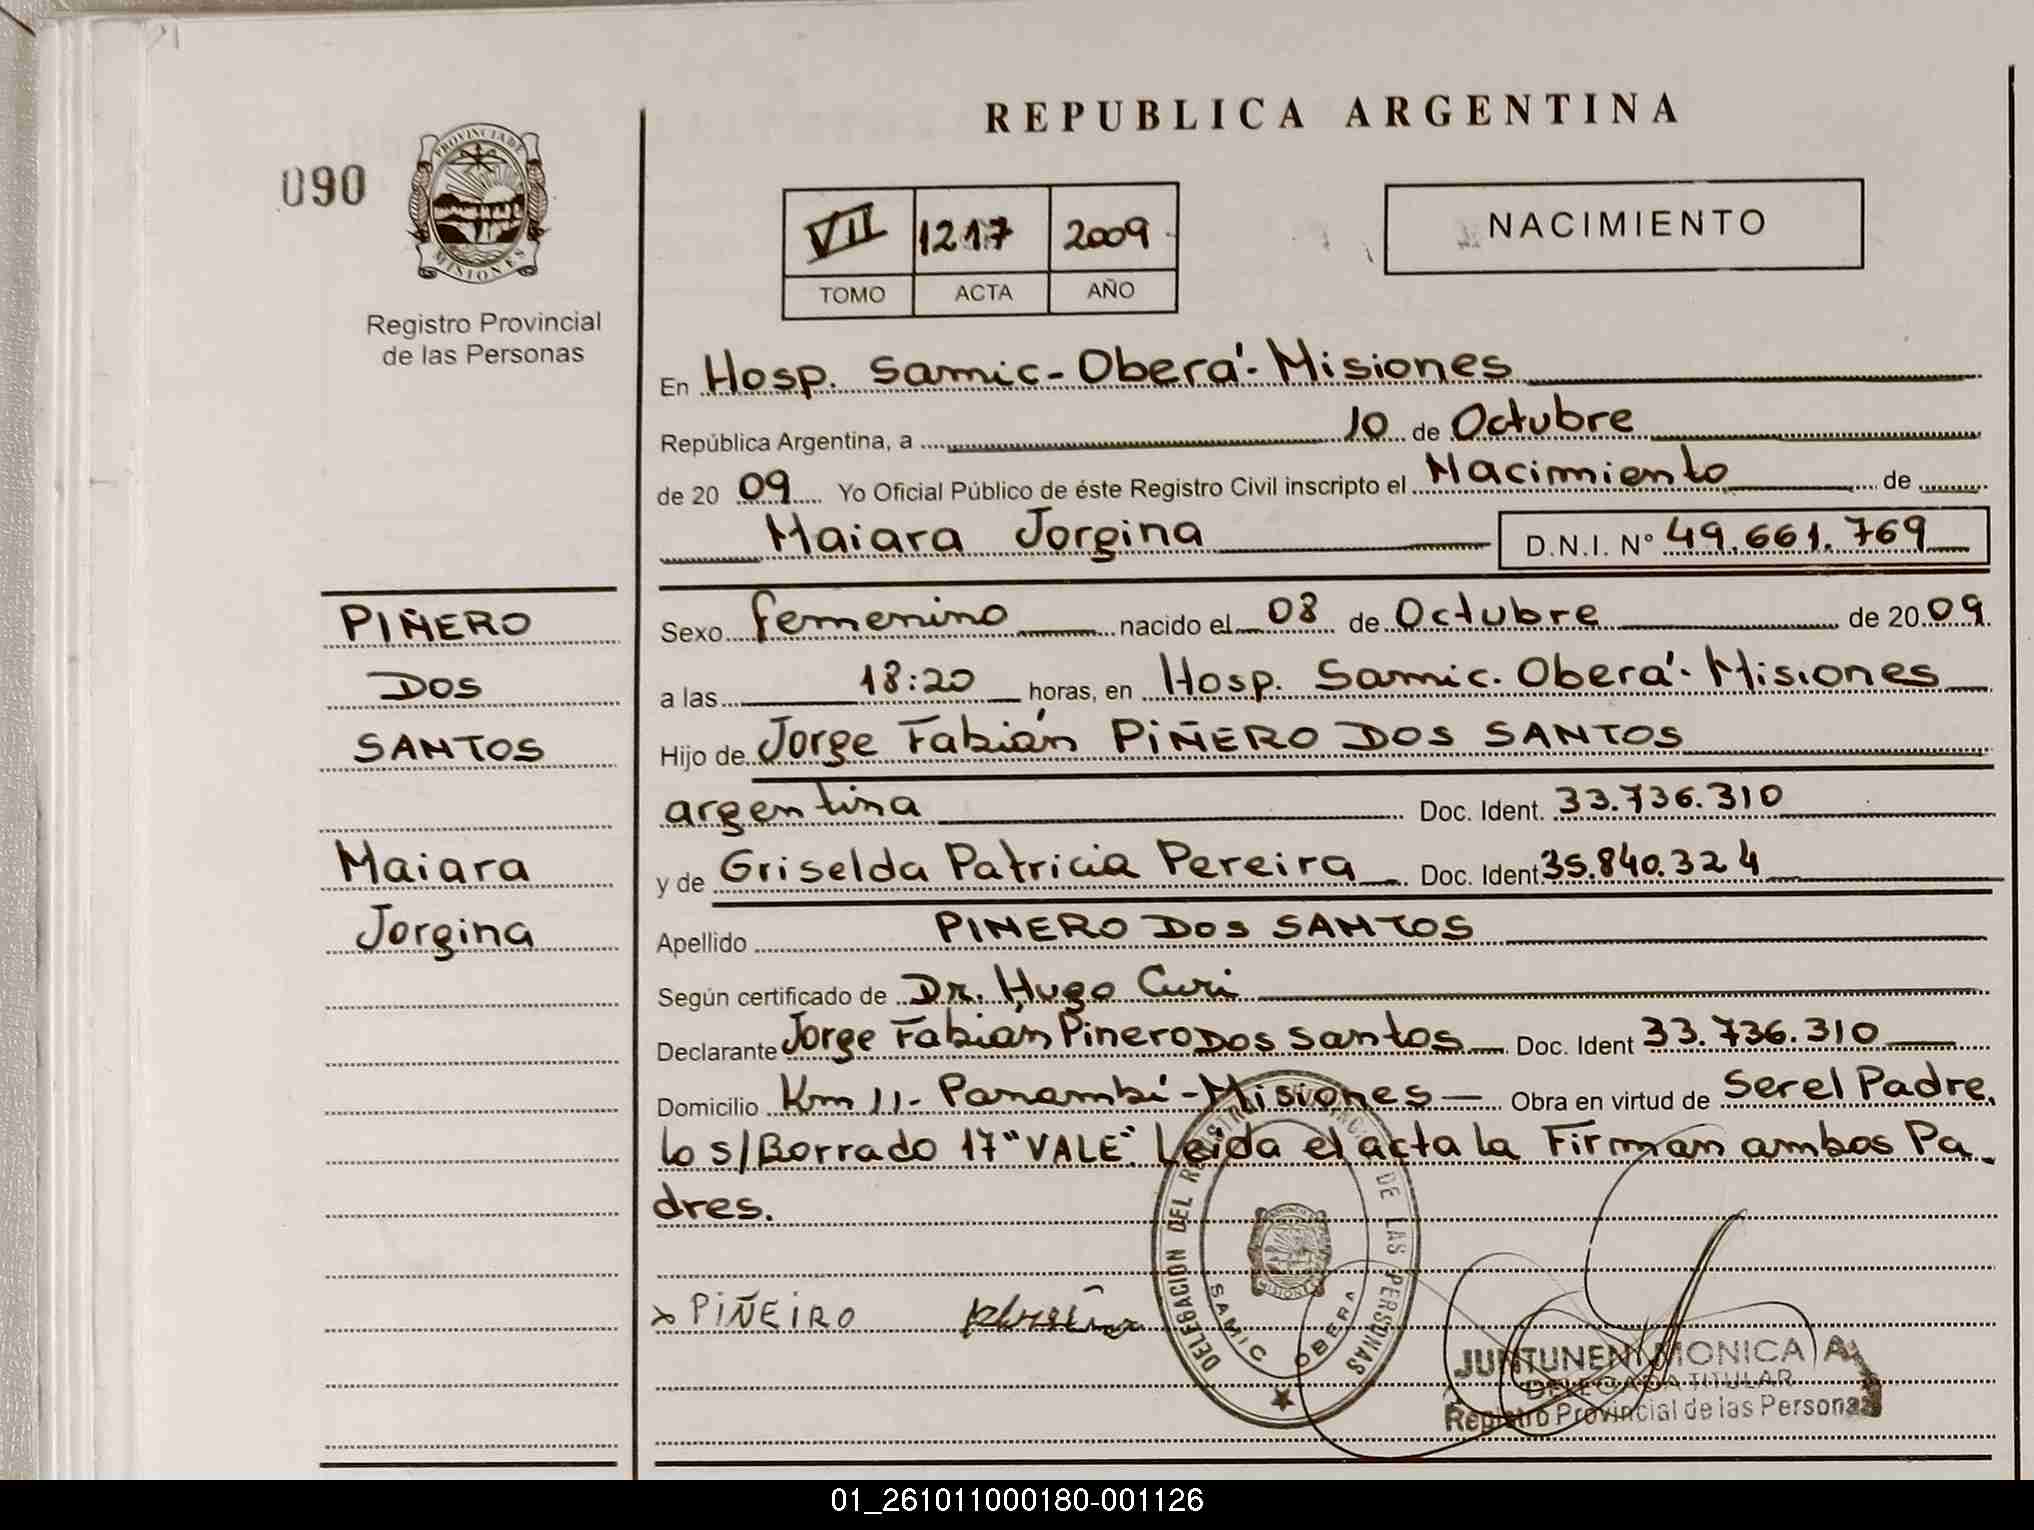 REPUBLICA ARGENTINA
090
PROVINCIA DE
MISIONES
Registro Provincial
de las Personas
VII 1217 2009
TOMO ACTA AÑO
NACIMIENTO
En Hosp. Samic - Oberá - Misiones
República Argentina, a 10 de Octubre
de 20 09 Yo Oficial Público de éste Registro Civil inscripto el Nacimiento de
Maiara Jorgina D.N.I. N° 49.661.769
PIÑERO
DOS
SANTOS
Maiara
Jorgina
Sexo femenino nacido el 08 de Octubre de 20 09
a las 18:20 horas, en Hosp. Samic. Oberá - Misiones
Hijo de Jorge Fabián PIÑERO DOS SANTOS
argentina Doc. Ident. 33.736.310
y de Griselda Patricia Pereira Doc. Ident. 35.840.324
Apellido PIÑERO DOS SANTOS
Según certificado de Dr. Hugo Curi
Declarante Jorge Fabián Pinero DOS Santos Doc. Ident 33.736.310
Domicilio Km 11 - Panambí - Misiones Obra en virtud de Ser el Padre.
lo s/Borrado 17 "VALE". Leida el acta la Firman ambos Pa
dres.
x PIÑEIRO
DELEGACIÓN DEL REGISTRO PROVINCIAL DE LAS PERSONAS
MISIONES
SAMIC OBERA
JUNTUNEN MONICA A
DELEGADA TITULAR
Registro Provincial de las Personas
01_261011000180-001126